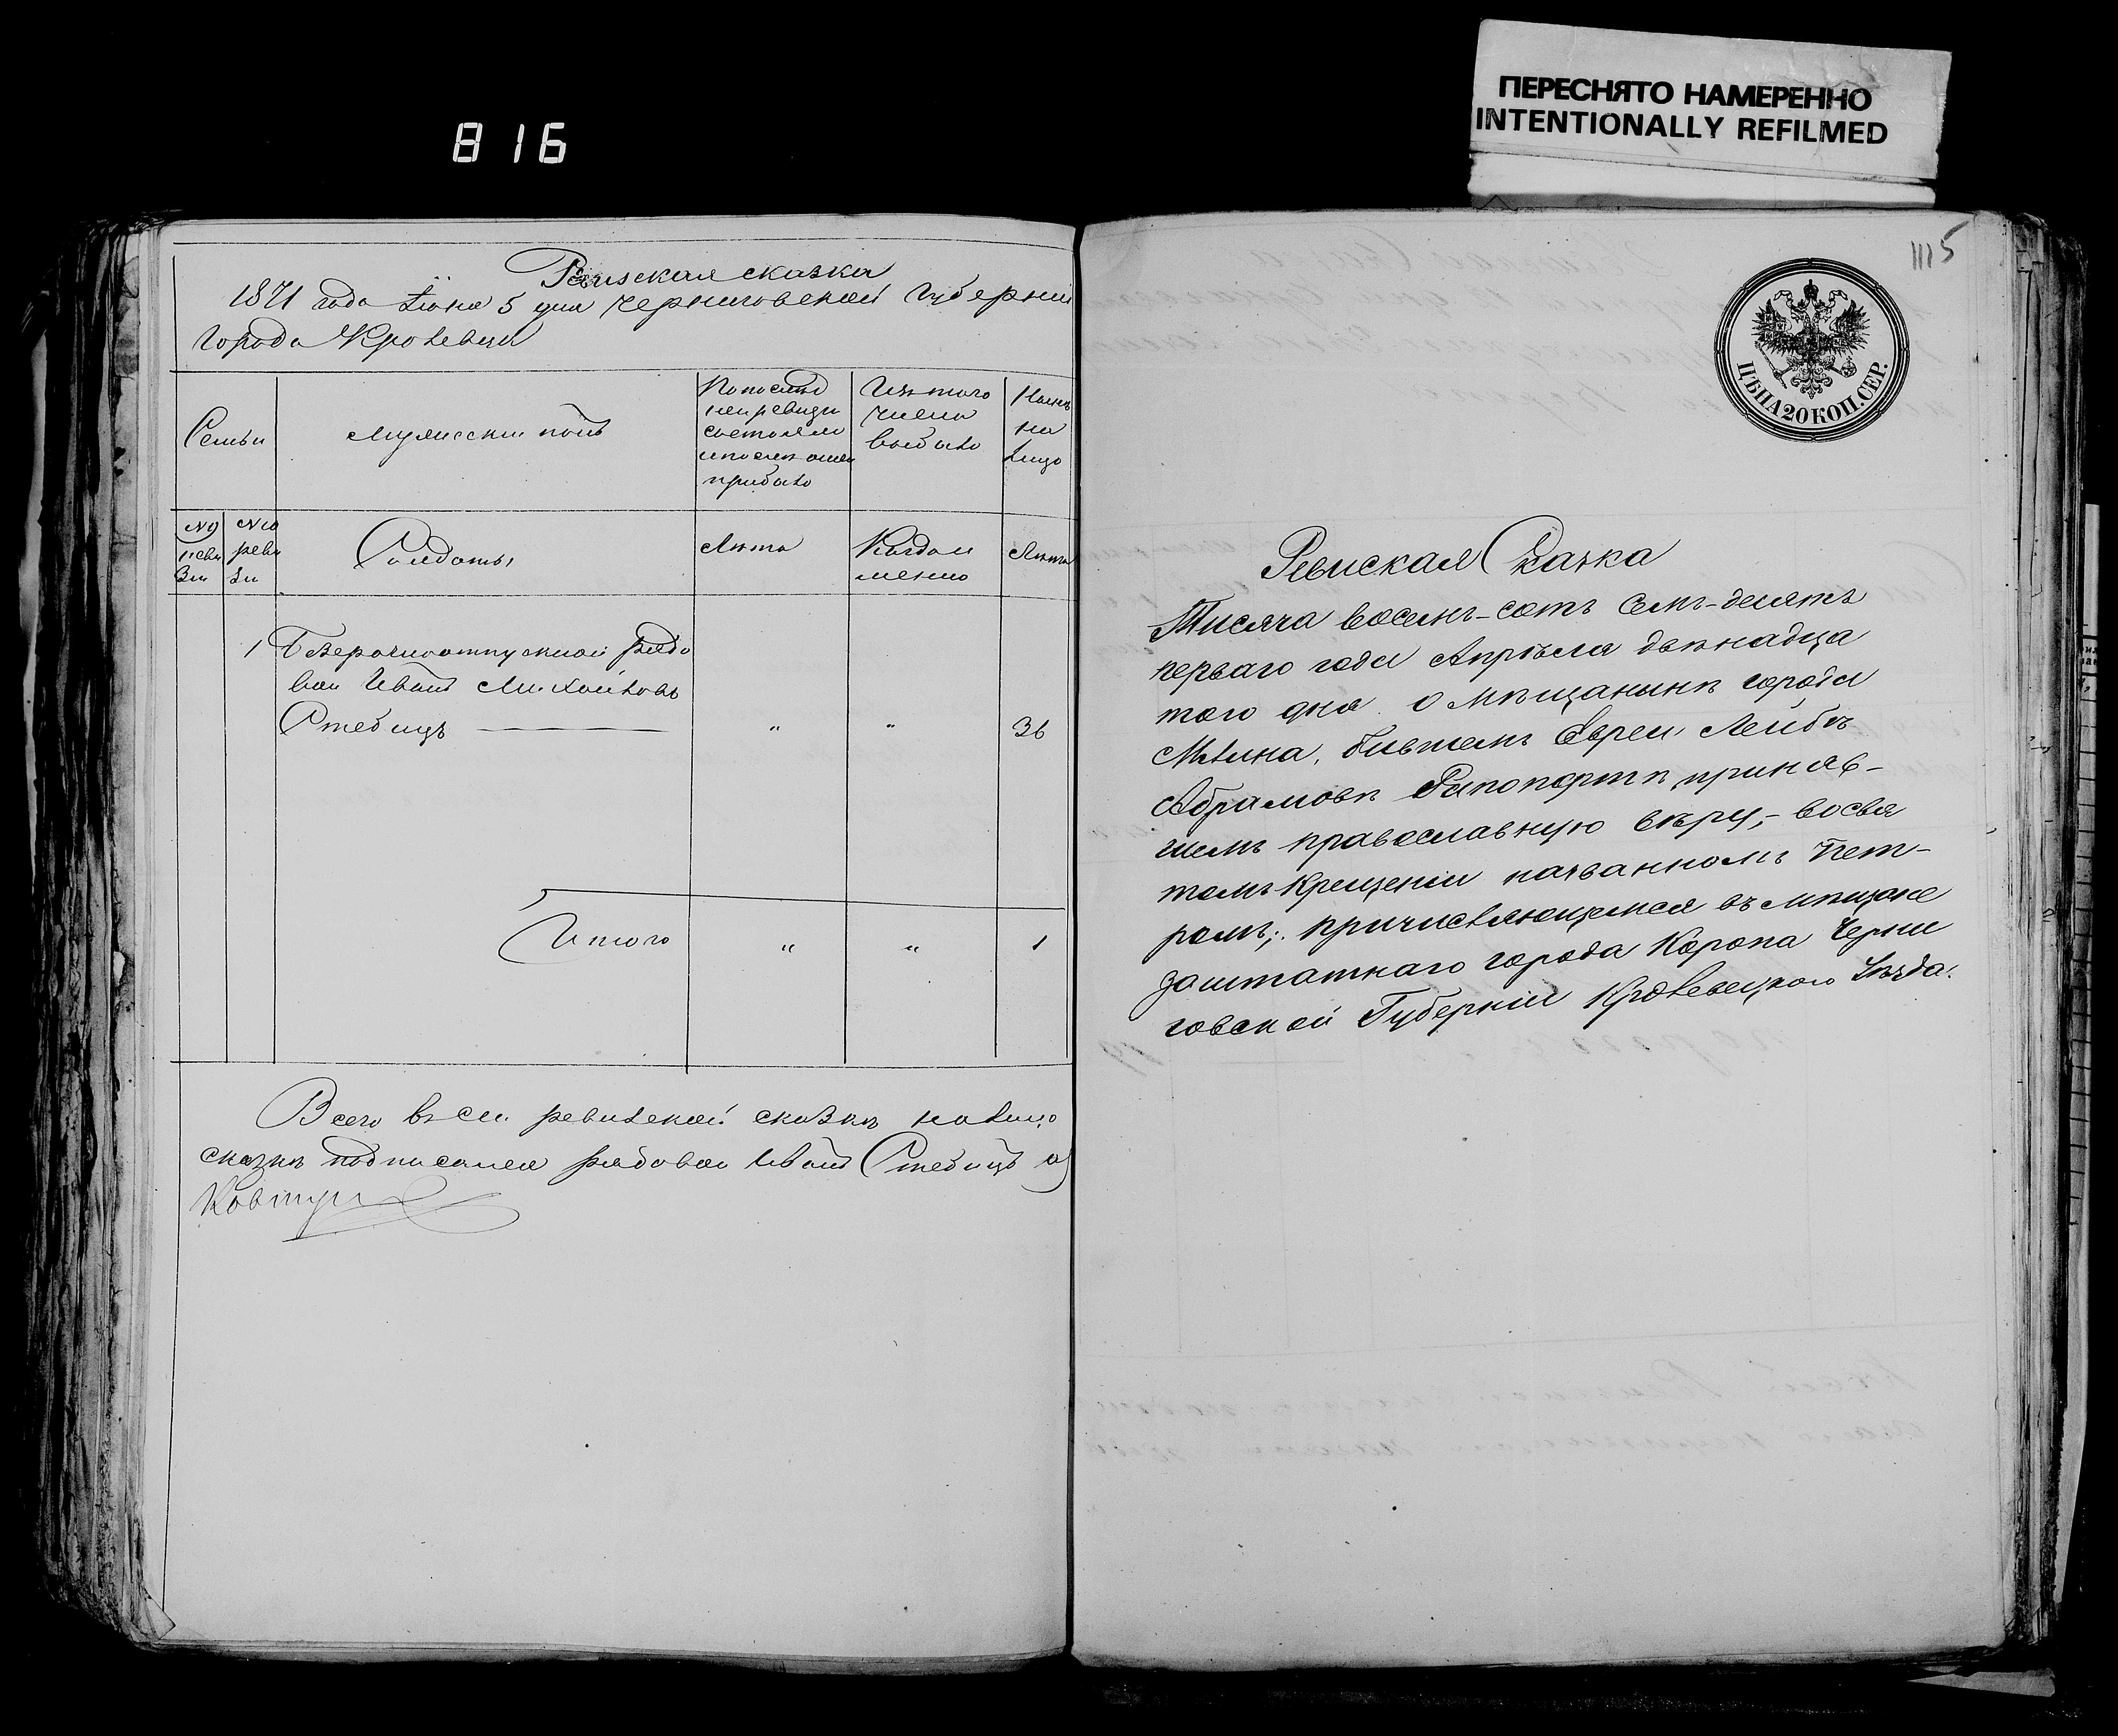 816
ПЕРЕСНЯТО НАМЕРЕННО
INTENTIONALLY REFILMED
Ревизская сказка
1871 года Іюня 5 дня Черниговской Губерніи
Города Кролевца
Семьи
Мужескій полъ
По последней ревизіи состояло и после оной прибыло
Изъ того числа выбыло
Нынѣ на лицо
№ ревизіи
№ ревизіи
Солдаты
Лѣта
Когда именно
Лѣта
1 Безсрочноотпускной рядо
вой Иванъ Михайловъ
Стебицъ — " " 36
Итого " " 1
Всего въ сей ревизской сказкѣ на лицо
сказкѣ подписался рядовой Иванъ Стебицъ а
Ковтун
1115
ЦѢНА 20 КОП. СЕР.
Ревиская Сказка
Тисяча восемь-сотъ Семь-десятъ
перваго года Апрѣля двѣнадца
того дня. О мѣщанинѣ города
Мглина, бившемъ Евреи Лейбѣ
Абрамовѣ Рапопортѣ, приняв-
шемъ православную вѣру,- во свя
томъ Крещеніи названномъ Пет-
ромъ; причисляющемся въ мѣщане
заштатнаго города Коропа Черни
говской Губерніи Кролевецкого Уѣзда.